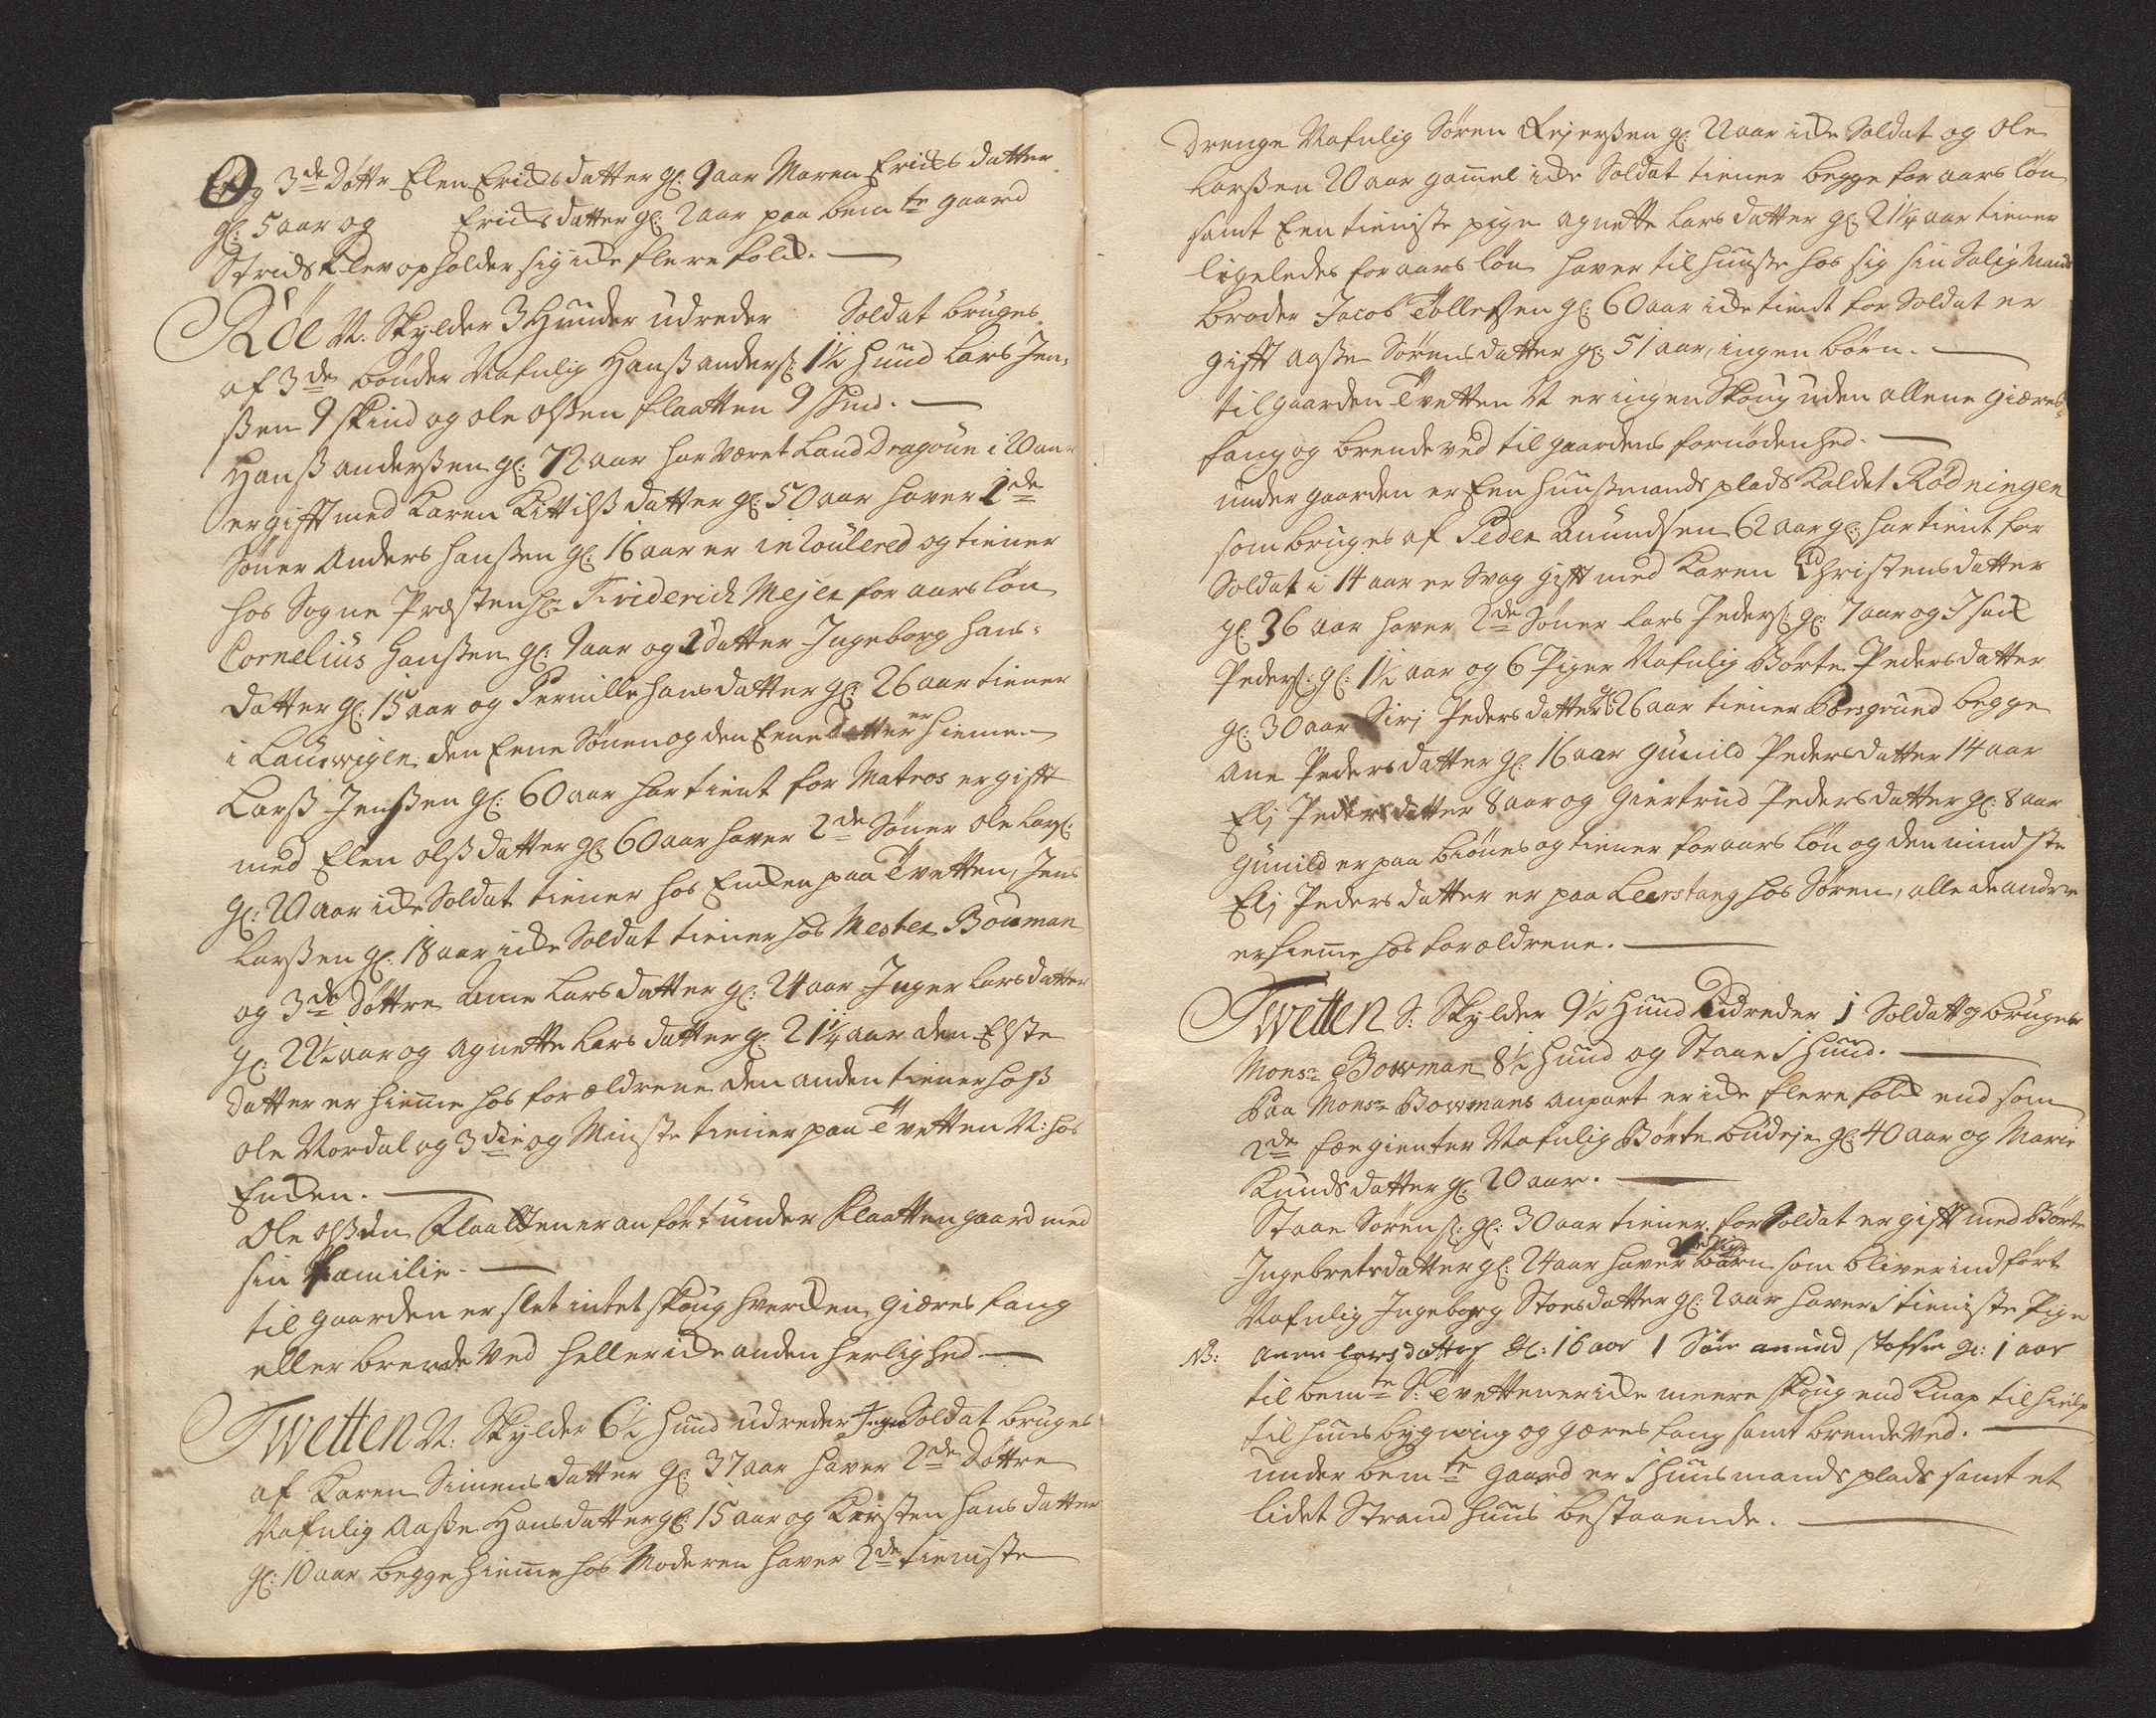 Og 3de Døttr Elen Ericksdatter gl: 9 aar Maren Ericks datter
gl: 5 aar og Ericksdatter gl: 2 aar paa bemte gaard
Stridsklev opholder sig icke flere folck.
Røe N. Skylder 3 Hunder udreder Soldat bruges
af 3de bønder Nafnlig Hanss anderss: 1½ Hund Lars Jen-
ssen 9 skind og ole olssen flaatten 9 skind.
Hanss anderssen gl: 72 aar har været Land Dragoun i 20 aar
er gifft med Karen Kittilss datter gl: 50 aar haver 2de
Søner Anders hanssen gl: 16 aar er inRoulered og tiener
hos Sogne Præsten hr Friderich Mejer for aars løn
Cornelius Hanssen gl: 9 aar og 2 datter Ingeborg Hans-
datter gl: 15 aar og Pernille hans datter gl: 26 aar tiener
i Laurwigen den Eene Sønen og den Eene Datter er hieme
Larss Jenssen gl: 60 aar har tient for Matros er gifft
med Elen olss datter gl: 60 aar haver 2de Søner ole Larss:
gl: 20 aar icke Soldat tiener hos Encken paa Tvetten, Jens
Larssen gl: 18 aar icke Soldat tiener hos Mester Bouman
og 3de Døttre Anne Lars datter gl: 24 aar Inger Lars datter
gl: 22½ aar og Agnette Lars datter gl: 21¼ aar den Elste
datter er hieme hos forældrene den anden tiener hoss
ole Nordal og 3die og Minste tiener paa Tvetten N: hos
Encken.
Ole olssen Flaatten er anført under Flaatten gaard med
sin Familie.
til gaarden er slet intet skoug hvercken giæres fang
eller brende Ved heller icke anden herlighed
Twetten N: Skylder 6½ Hund udreder Ingen Soldat bruges
af Karen Simens datter gl: 37 aar haver 2de Døttre
Nafnlig Aasse Hansdatter gl: 15 aar og Kirsten hans datter
gl: 10 aar begge hieme hos Moderen haver 2de tieniste
Drenge Nafnlig Søren Rejerssen gl: 22 aar icke Soldat og ole
Larssen 20 aar gamel icke Soldat tiener begge for aars løn
samt Een tieniste pige agnette Lars datter gl: 21¼ aar tiener
ligeledes for aars løn haver til huusse hos sig sin Salig Mands
Broder Jacob Tollefsen gl: 60 aar icke tient for Soldat er
gifft aasse Sørens datter gl: 51 aar, ingen børn.
til gaarden Tvetten N er ingen Skoug uden allene Giæres
fang og brende ved til gaardens fornødenhed.
under gaarden er Een huussmands plads Kaldet Rødningen
som bruges af Peder Amundsen 62 aar gl: har tient for
Soldat i 14 aar er Svag gifft med Karen Christensdatter
gl: 36 aar haver 2de Søner Lars Pederss: gl: 7 aar og Isack
Pederss: gl: 1½ aar og 6 Piger Nafnlig Børte Pedersdatter
gl: 30 aar Siri Pedersdatter gl: 26 aar tiener Porsgrund begge
Ane Pedersdatter gl: 16 aar Gunild Pedersdatter 14 aar
Eli Pedersdatter 8 aar og Giertrud Pedersdatter gl: 8 aar
Gunild er paa biønes og tiener for aars løn og den mindste
Eli Pedersdatter er paa Leerstang hos Søren, alle de andre
er hieme hos forældrene.
Twetten S: Skylder 9½ Hund Udreder 1 Soldat og bruger
Monsr Bowman 8½ Hund og Staae 1 Hund.
Paa Monsr Bowmans anpart er icke flere folck end som
2de fæe gienter Nafnlig Børte budeje gl: 40 aar og Marie
Knudsdatter gl: 20 aar.
Staae Sørens: gl: 30 aar tiener for Soldat er gifft med Børte
Ingebretsdatter gl: 24 aar haver børn som bliver indført
Nafnlig Ingeborg Stoesdatter gl: 2 aar haver 1 tieniste Pige
NB: anne Larsdatter gl: 16 aar 1 Søn amund stofsen gl: 1 aar
til bemte S: Tvetten er icke meere skoug end Knap til hielp
til huus bygning og gæres fang samt brende Ved.
under bemte gaard er 1 huusmands plads samt et
lidet Strand huus bestaaende.